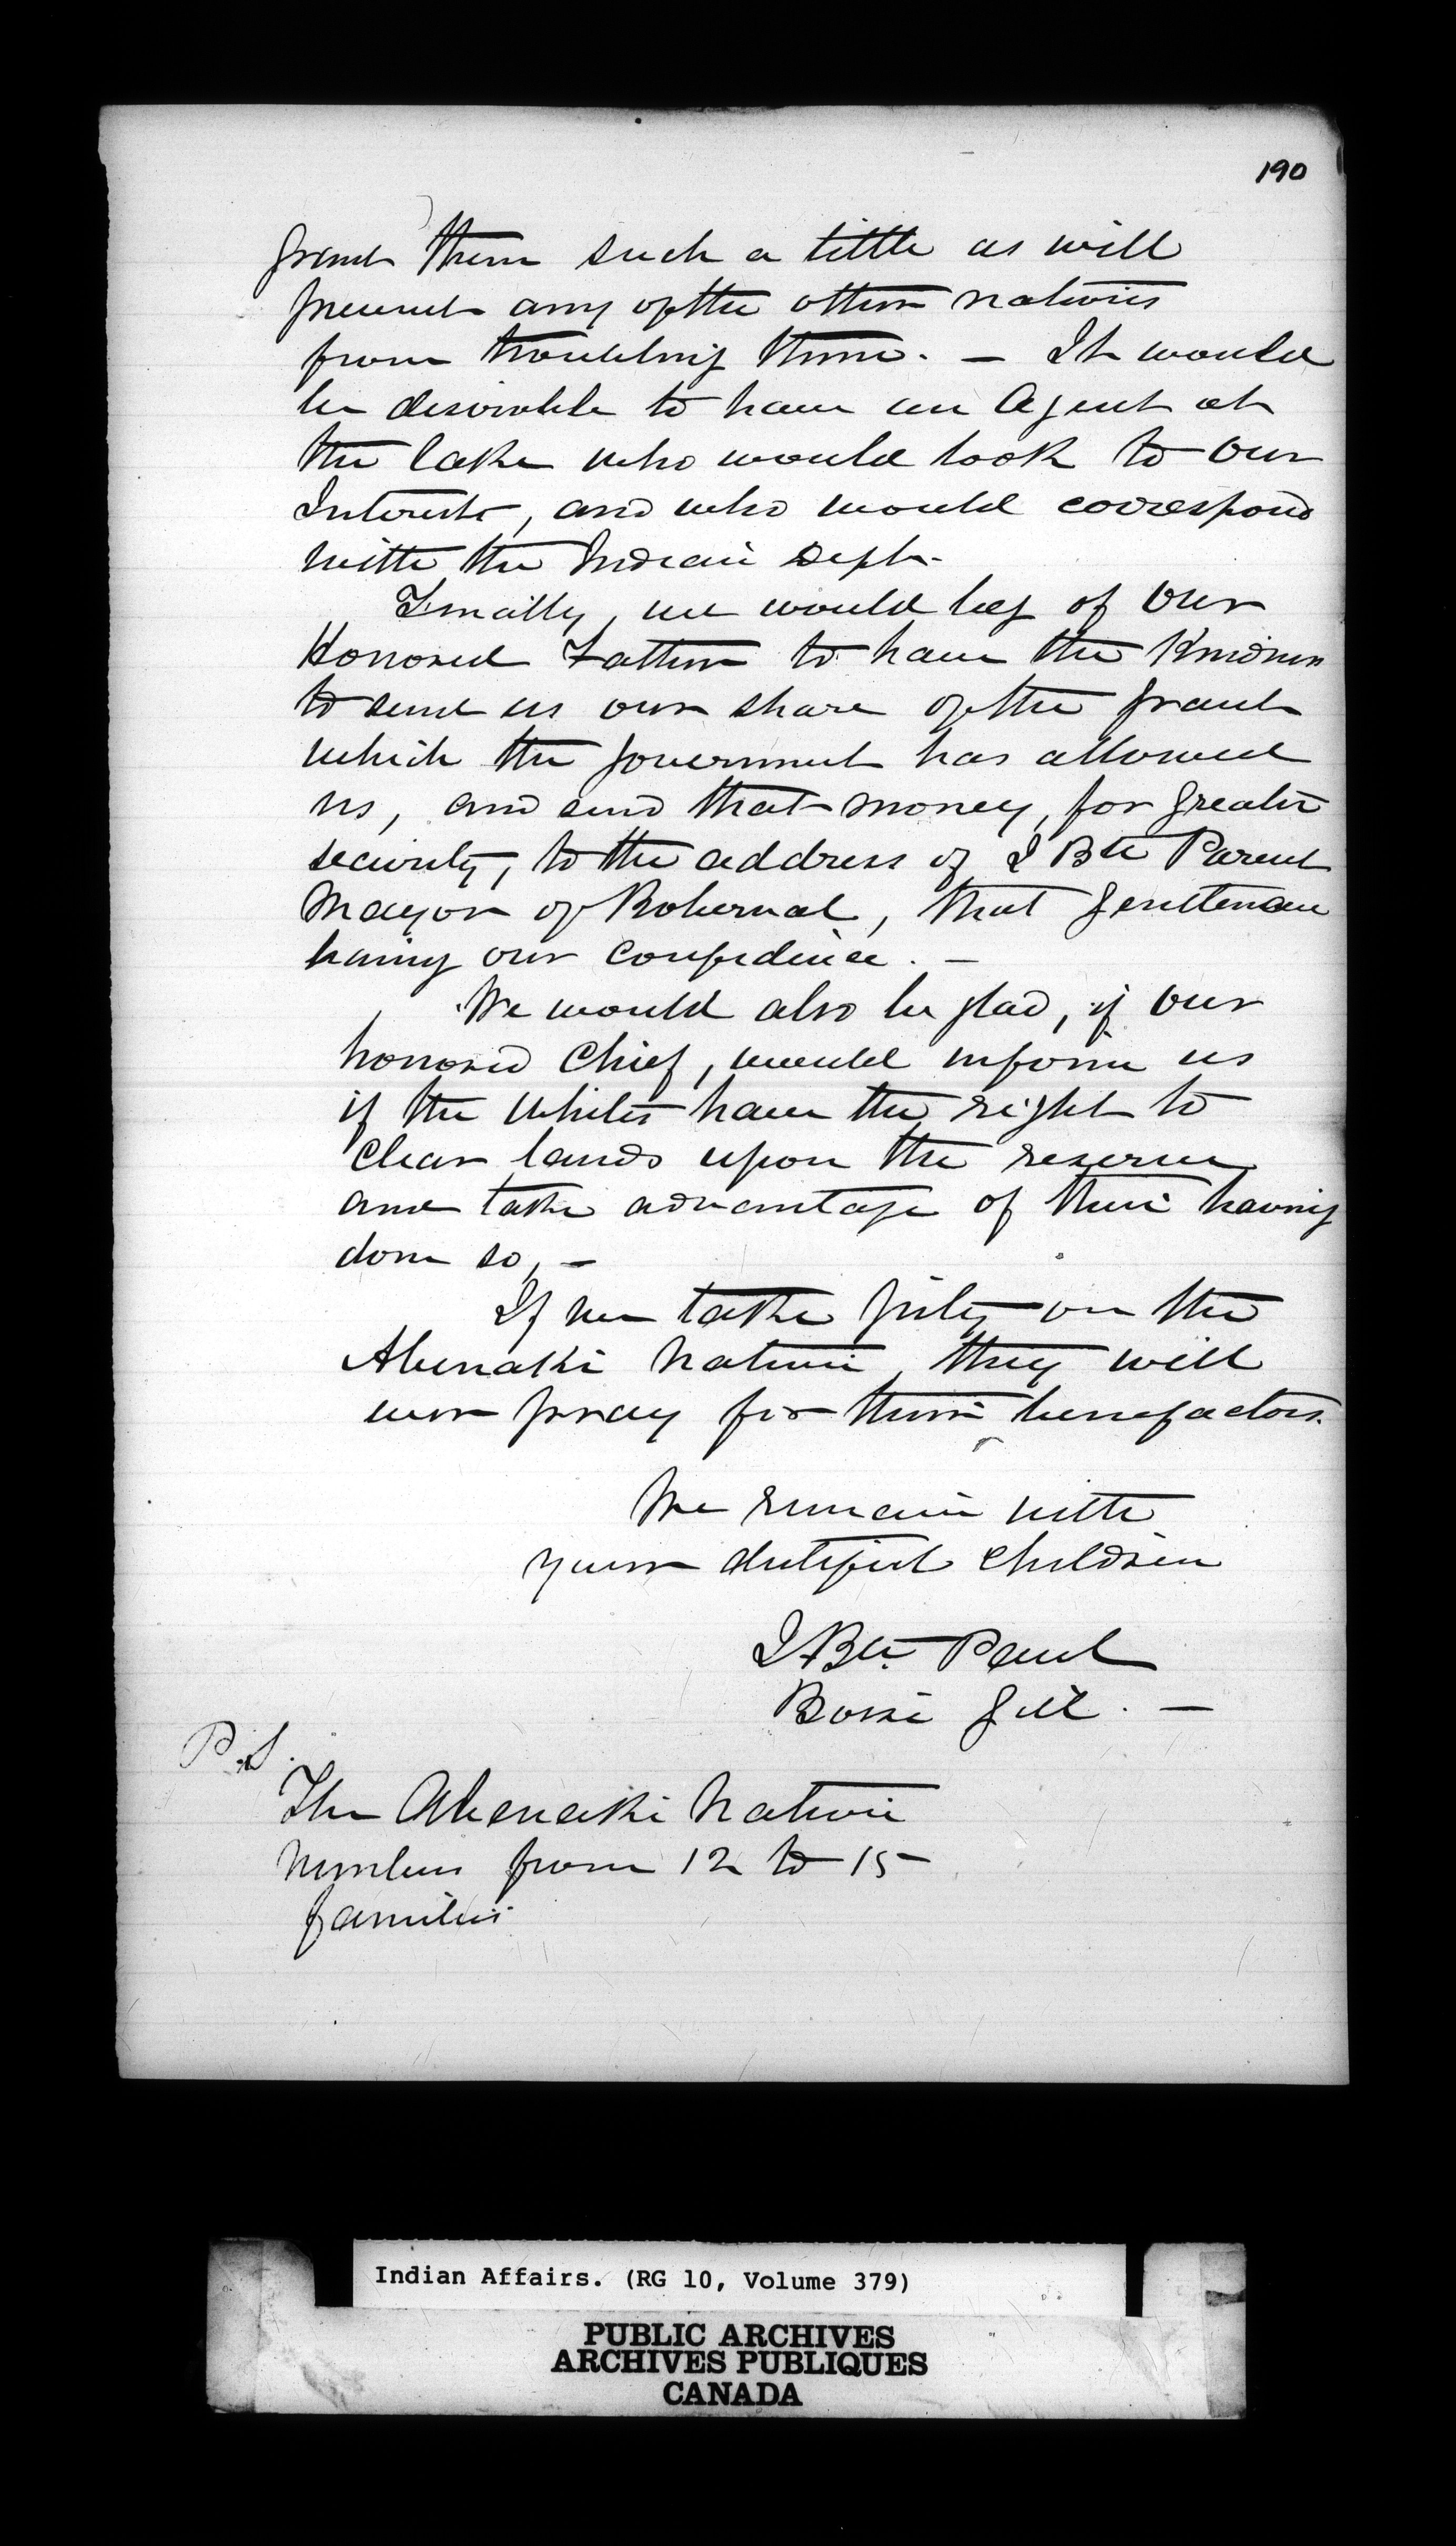 190
grant them such a tittle as will
prevent any of the other nations
from troubling them. — It would
be desirable to have an Agent at
the lake who would look to our
Interests, and who would correspond
with the Indian Dept.
Finally, we would beg of our
Honored Father to have the Kindness
to send us our share of the grant
which the government has allowed
us, and send that money, for greater
security, to the address of J Bte Parent
Mayor of Roberval, that gentleman
having our confidence. —
We would also be glad, if our
honored Chief, would inform us
if the whites have the right to
clear lands upon the reserve
and take advantage of their having
done so, —
If we take pity on the
Abenaki nation, they will
ever pray for their benefactors.
We remain with
your dutiful children
J. Bte. Paul
Gill. —
P.S.
The Abenaki Nation
numbers from 12 to 15
families
Indian Affairs. (RG 10, Volume 379)
PUBLIC ARCHIVES
ARCHIVES PUBLIQUES
CANADA